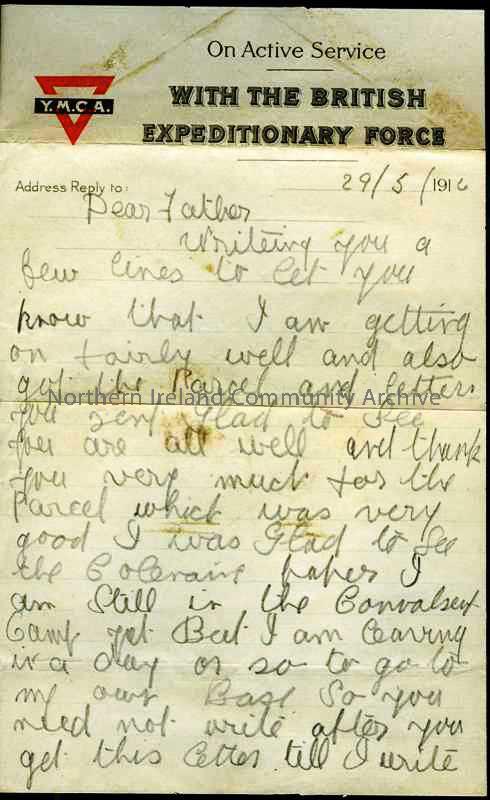 On Active Service
WITH THE BRITISH
EXPEDITIONARY FORCE
Y.M.C.A.
Address Reply to:
29/5/1916
Dear Father
Writeing you a
few lines to let you
know that I am getting
on fairly well and also
got the Parcel and letters
Northern Ireland Community Archive
you sent Glad to see
you are all well and thank
you very much for the
Parcel which was very
good I was Glad to See
the Coleraine paper I
am Still in the Convalsent
Camp yet But I am leaving
in a day or so to go to
my own Base So you
need not write after you
get this letter till I write